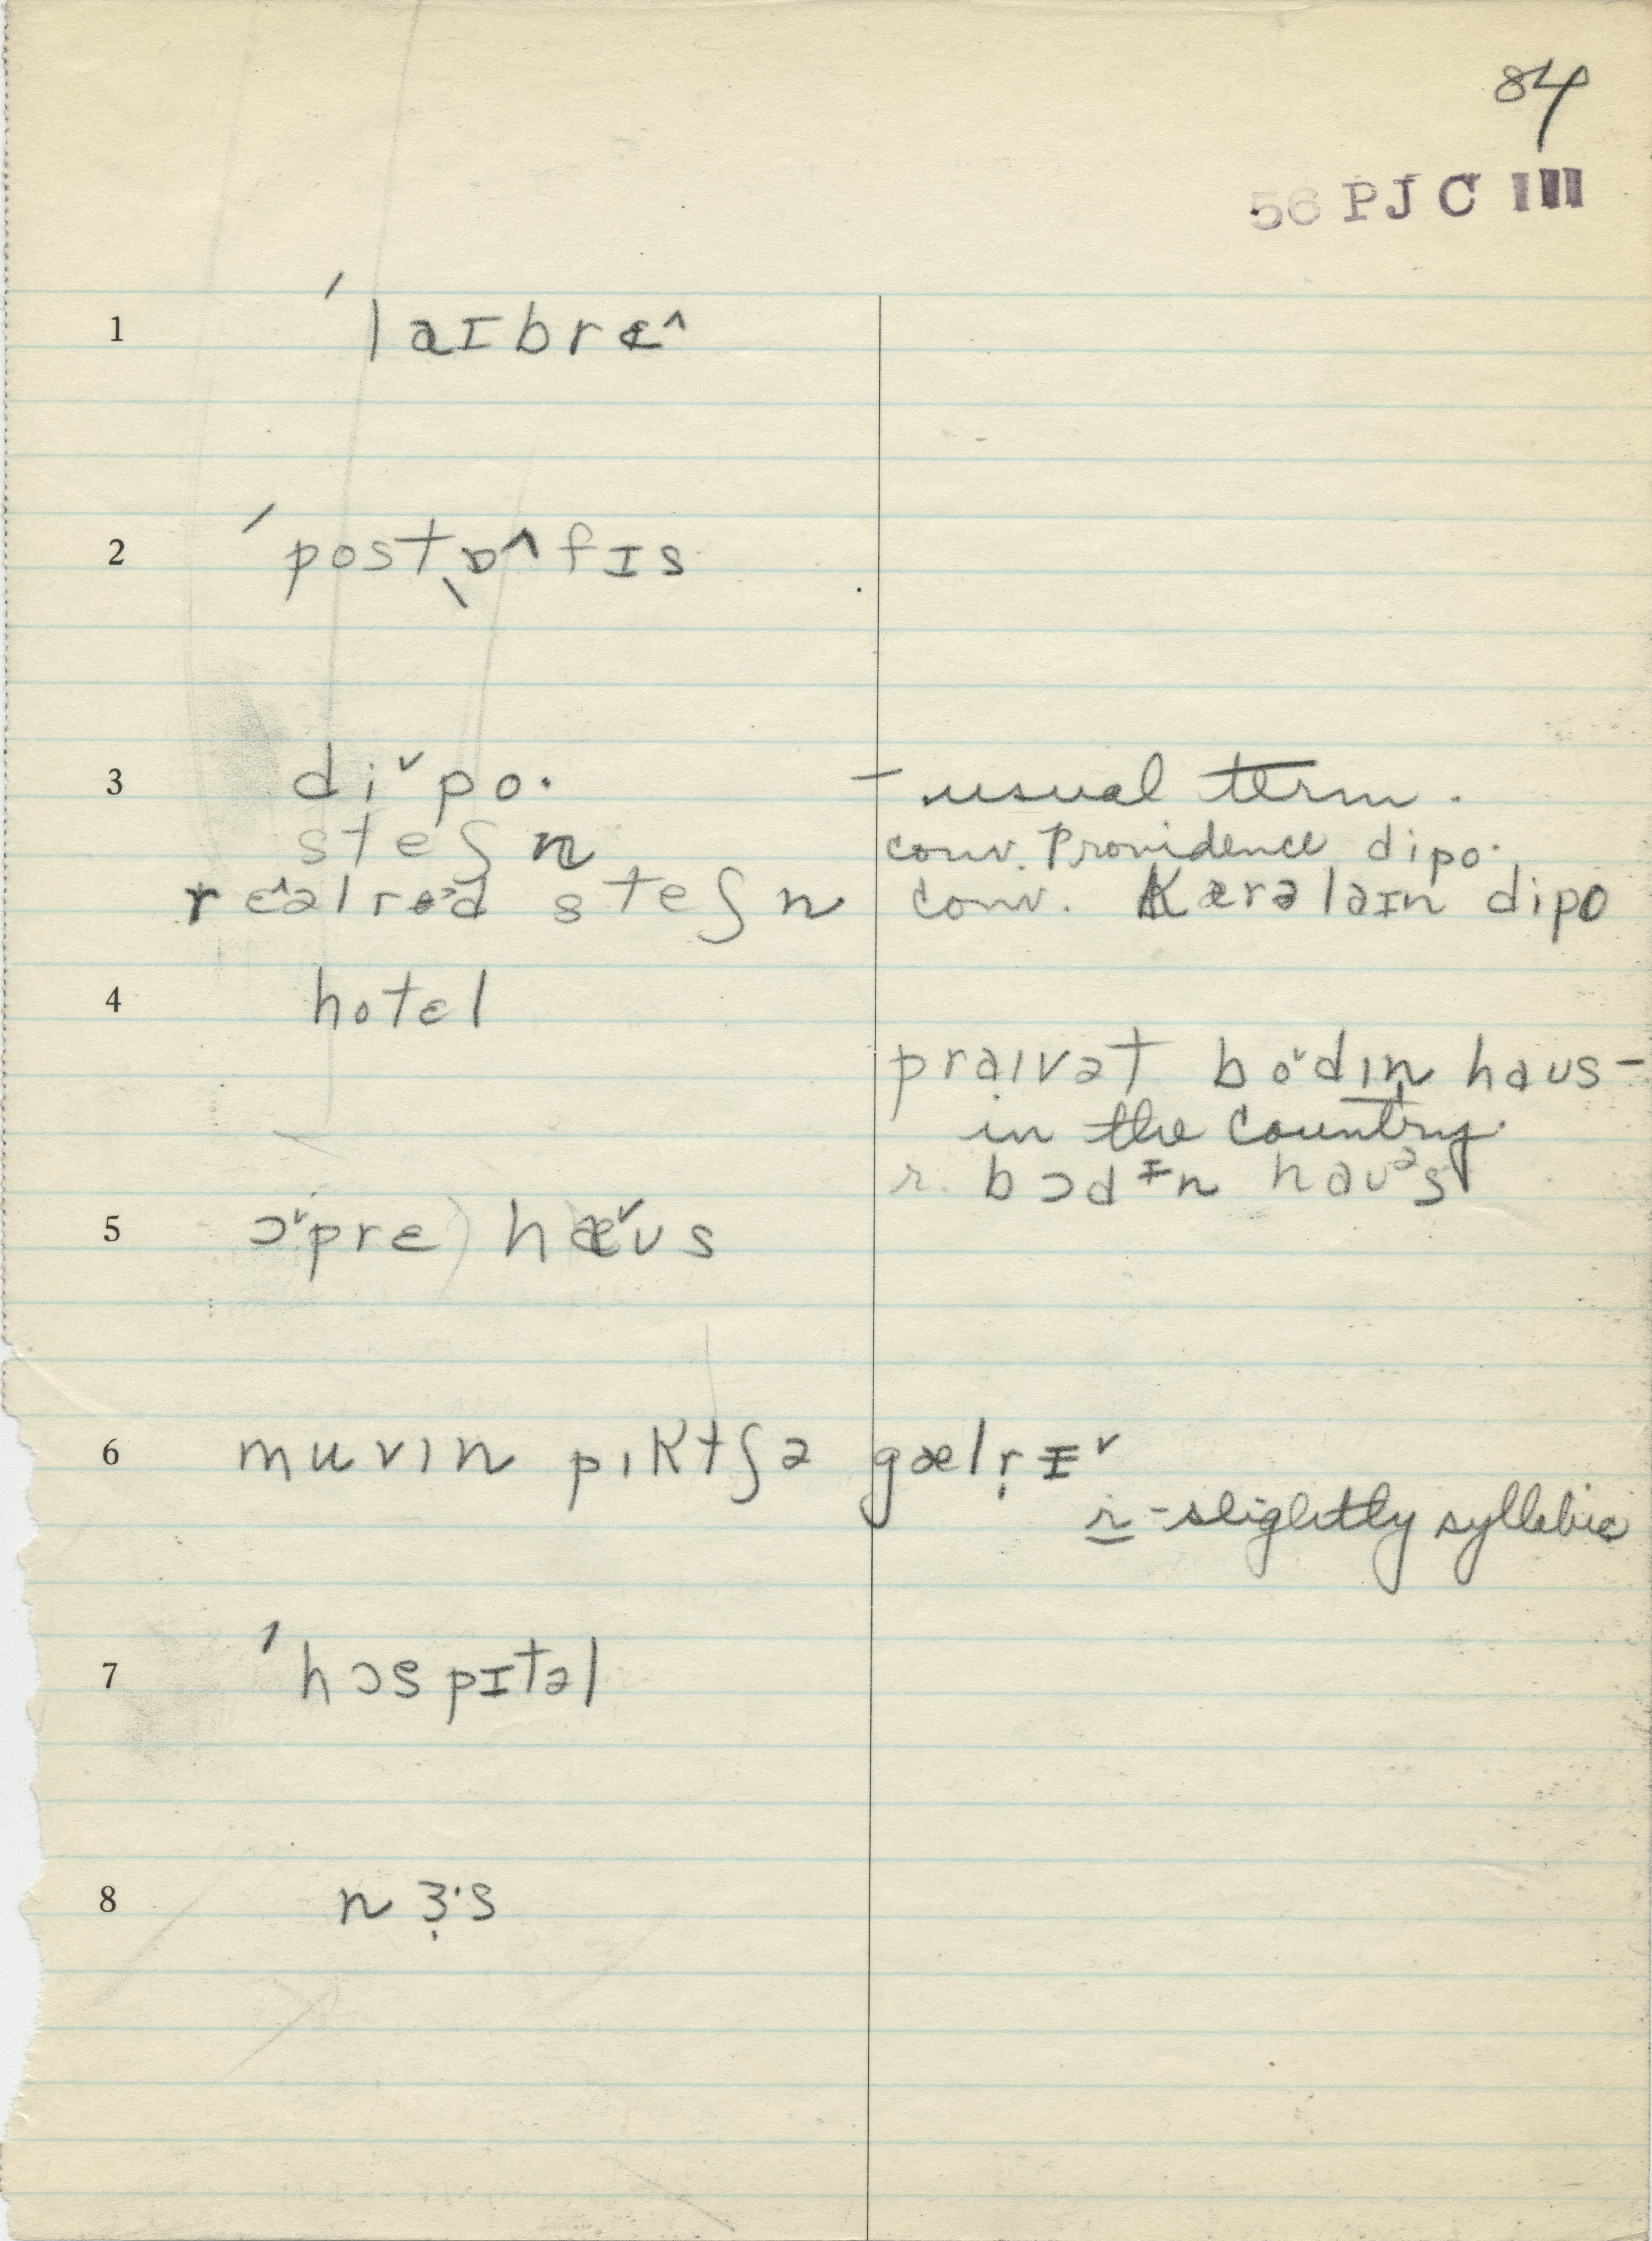 84
56 PJC III
1 ˈlaɪbrɛ^
2 ˈpostˌɒ^fɪs
3 diˇpo· – usual term.
steʃn conv. Providence dipo·
rɛ^əlroəd steʃn conv. Kærəlaɪn dipo
4 hotɛl
praɪvət boˇdɪn haus –
in the country.
r. bɔdɪn hauᵊs
5 ɔˇprɛ) hæˇus
6 muvɪn pɪktʃə gælr̩ɪˇ
r – slightly syllabic
7 ˈhɔspɪtəl
8 nɜ̣·s